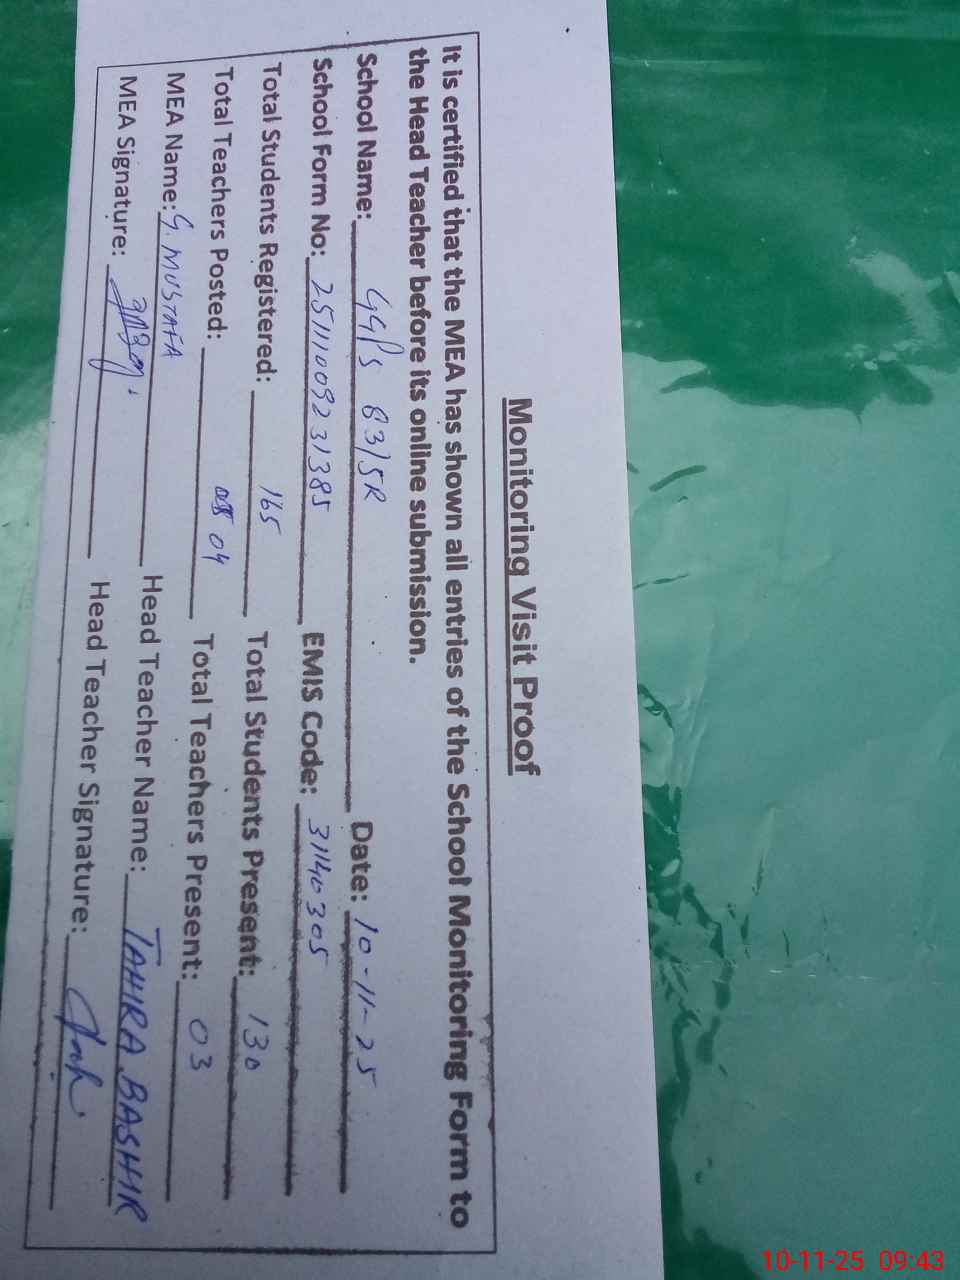 Monitoring Visit Proof
It is certified that the MEA has shown all entries of the School Monitoring Form to
the Head Teacher before its online submission.
School Name: GGPS 83/5R Date: 10-11-25
School Form No: 251110092 31385 EMIS Code: 31140305
Total Students Registered: 165 Total Students Present: 130
Total Teachers Posted: 04 Total Teachers Present: 03
MEA Name: G. MUSTAFA Head Teacher Name: TAHIRA BASHIR
MEA Signature: Head Teacher Signature:
10-11-25 09:43